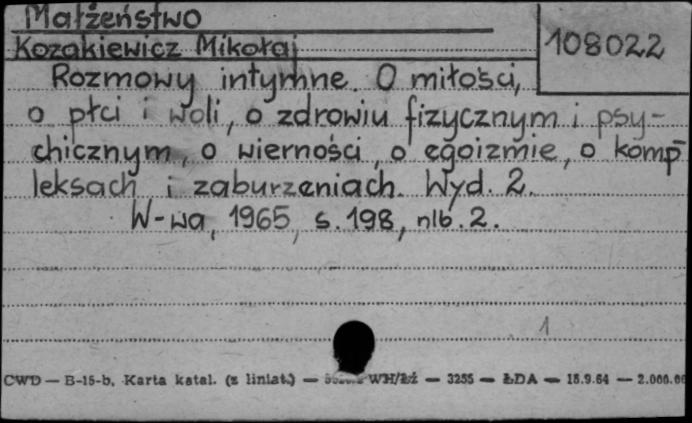 Małżeństwo
Kozakiewicz Mikołaj
108022
Rozmowy intymne. O miłości,
o płci i woli, o zdrowiu fizycznym i psy-
chicznym, o wierności, o egoizmie, o komp-
leksach i zaburzeniach. Wyd. 2.
W-wa, 1965, s. 198, nlb. 2.
1
CWD — B-15-b. Karta katal. (z liniat.) — WH/Łź — 3255 — ŁDA — 15.9.64 — 2.000.00